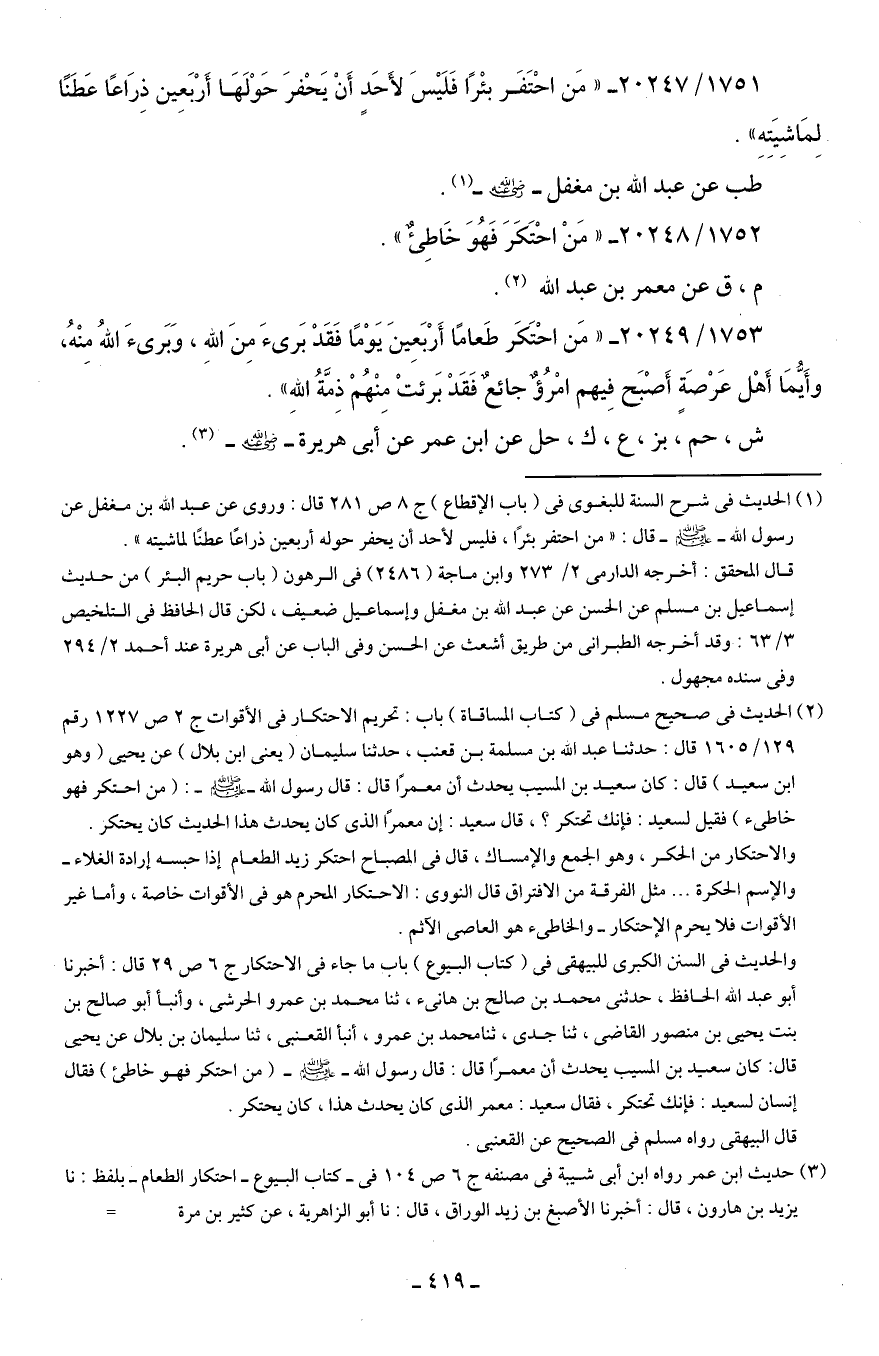 ٢٠٢٤٧/١٧٥١ـ « مَن احْتَفَـر بئْرًا فَلَيْسَ لأَحَدٍ أَنْ يَحْفرَ حَوْلَهَـا أَرْبَعِين ذِرَاعًا عَطَنًا
لِمَاشِيَتِهِ» .
طب عن عبد الله بن مغفل ـ رضي الله عنه ـ(١) .
٢٠٢٤٨/١٧٥٢ـ « مَنْ احْتَكَرَ فَهُوَ خَاطِئٌ» .
م ، ق عن معمر بن عبد الله (٢) .
٢٠٢٤٩/١٧٥٣ـ « مَن احْتَكَر طَعامًا أَرْبَعِينَ يَوْمًا فَقَدْ بَرِىءَ مِنَ اللهِ ، وبَرِىءَ اللهُ مِنْهُ،
وأَيُّمَا أَهْل عَرْصَةٍ أَصْبَح فِيهم امْرُؤٌ جائعٌ فَقَدْ بَرِئتْ مِنْهُمْ ذِمَّةُ اللهِ» .
ش ، حم ، بز ، ع ، ك ، حل عن ابن عمر عن أبى هريرة ـ رضي الله عنه ـ (٣) .
(١) الحديث فى شـرح السنة للبغـوى فى ( باب الإقطاع ) ج ٨ ص ٢٨١ قال : وروى عن عبـد الله بن مـغفل عن
رسول الله ـ صلى الله عليه وسلم ـ قال : « من احتفر بئرًا ، فليس لأحد أن يحفر حوله أربعين ذراعًا عطنًا لماشيته » .
قـال المحقق : أخـرجه الدارمى ٢/ ٢٧٣ وابن مـاجة ( ٢٤٨٦) فى الـرهون ( باب حريم البـئر ) من حـديث
إسمـاعيل بن مـسلم عن الحسن عن عبـد الله بن مغفل وإسماعـيل ضعـيف ، لكن قال الحافظ فى الـتلخيص
٣/ ٦٣ : وقد أخـرجه الطبـرانى من طريق أشعث عن الحـسن وفى الباب عن أبى هريرة عند أحـمد ٢/ ٢٩٤
وفى سنده مجهول .
(٢) الحديث فى صـحيح مـسلم فى ( كتـاب المساقـاة ) باب : تحريم الاحتكـار فى الأقوات ج ٢ ص ١٢٢٧ رقم
١٦٠٥/١٢٩ قال : حدثنـا عبد الله بن مسلمة بـن قعنب ، حدثنا سليمـان ( يعنى ابن بلال ) عن يحيى ( وهو
ابن سعيـد ) قال : كان سعيـد بن المسيب يحدث أن معـمرًا قال : قال رسول الله ـ صلى الله عليه وسلم ـ : ( من احـتكر فهو
خاطىء ) فقيل لسعيد : فإنك تحتكر ؟ ، قال سعيد : إن معمرًا الذى كان يحدث هذا الحديث كان يحتكر .
والاحتكار من الحكـر ، وهو الجمع والإمسـاك ، قال فى المصبـاح احتكر زيد الطعـام إذا حبسـه إرادة الغلاء ـ
والإسم الحكرة ... مثل الفرقـة من الافتراق قال النووى : الاحـتكار المحرم هو فى الأقوات خاصة ، وأمـا غير
الأقوات فلا يحرم الإحتكار ـ والخاطىء هو العاصى الآثم .
والحديث فى السنن الكبرى للبيهقى فى ( كتاب البـيوع ) باب ما جاء فى الاحتكار ج ٦ ص ٢٩ قال : أخبرنا
أبو عبد الله الحـافظ ، حدثنى محمـد بن صالح بن هانىء ، ثنا محـمد بن عمرو الحرشى ، وأنبـأ أبو صالح بن
بنت يحيى بن منصور القاضى ، ثنا جـدى ، ثنامحمد بن عمرو ، أنبأ القعـنبى ، ثنا سليمان بن بلال عن يحيى
قال: كان سعيـد بن المسيب يحدث أن معمـرًا قال : قال رسول الله ـ صلى الله عليه وسلم ـ ( من احتكر فهـو خاطئ ) فقال
إنسان لسعيد : فإنك تحتكر ، فقال سعيد : معمر الذى كان يحدث هذا ، كان يحتكر .
قال البيهقى رواه مسلم فى الصحيح عن القعنبى .
(٣) حديث ابن عمر رواه ابن أبى شـيبة فى مصنفه ج ٦ ص ١٠٤ فى ـ كتاب البـيوع ـ احتكار الطعام ـ بلفظ : نا
يزيد بن هارون ، قال : أخبرنا الأصبغ بن زيد الوراق ، قال : نا أبو الزاهرية ، عن كثير بن مرة =
ـ ٤١٩ ـ